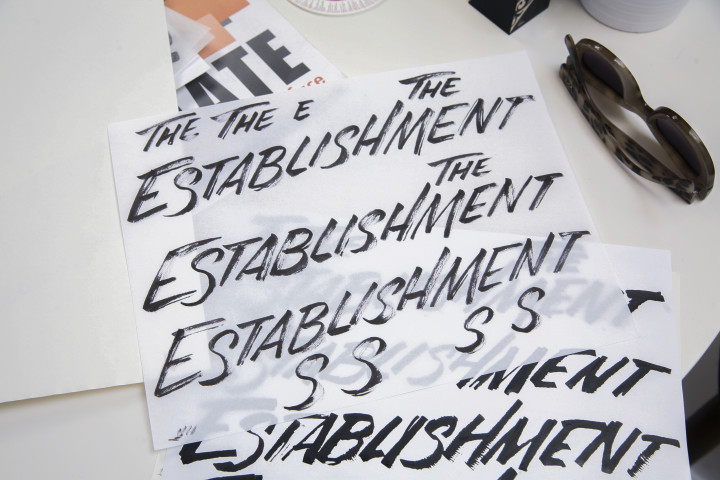 ATE
THE THE E THE
ESTABLISHMENT
THE
ESTABLISHMENT
ESTABLISHMENT
S S S S
MENT
ESTABLISHMENT